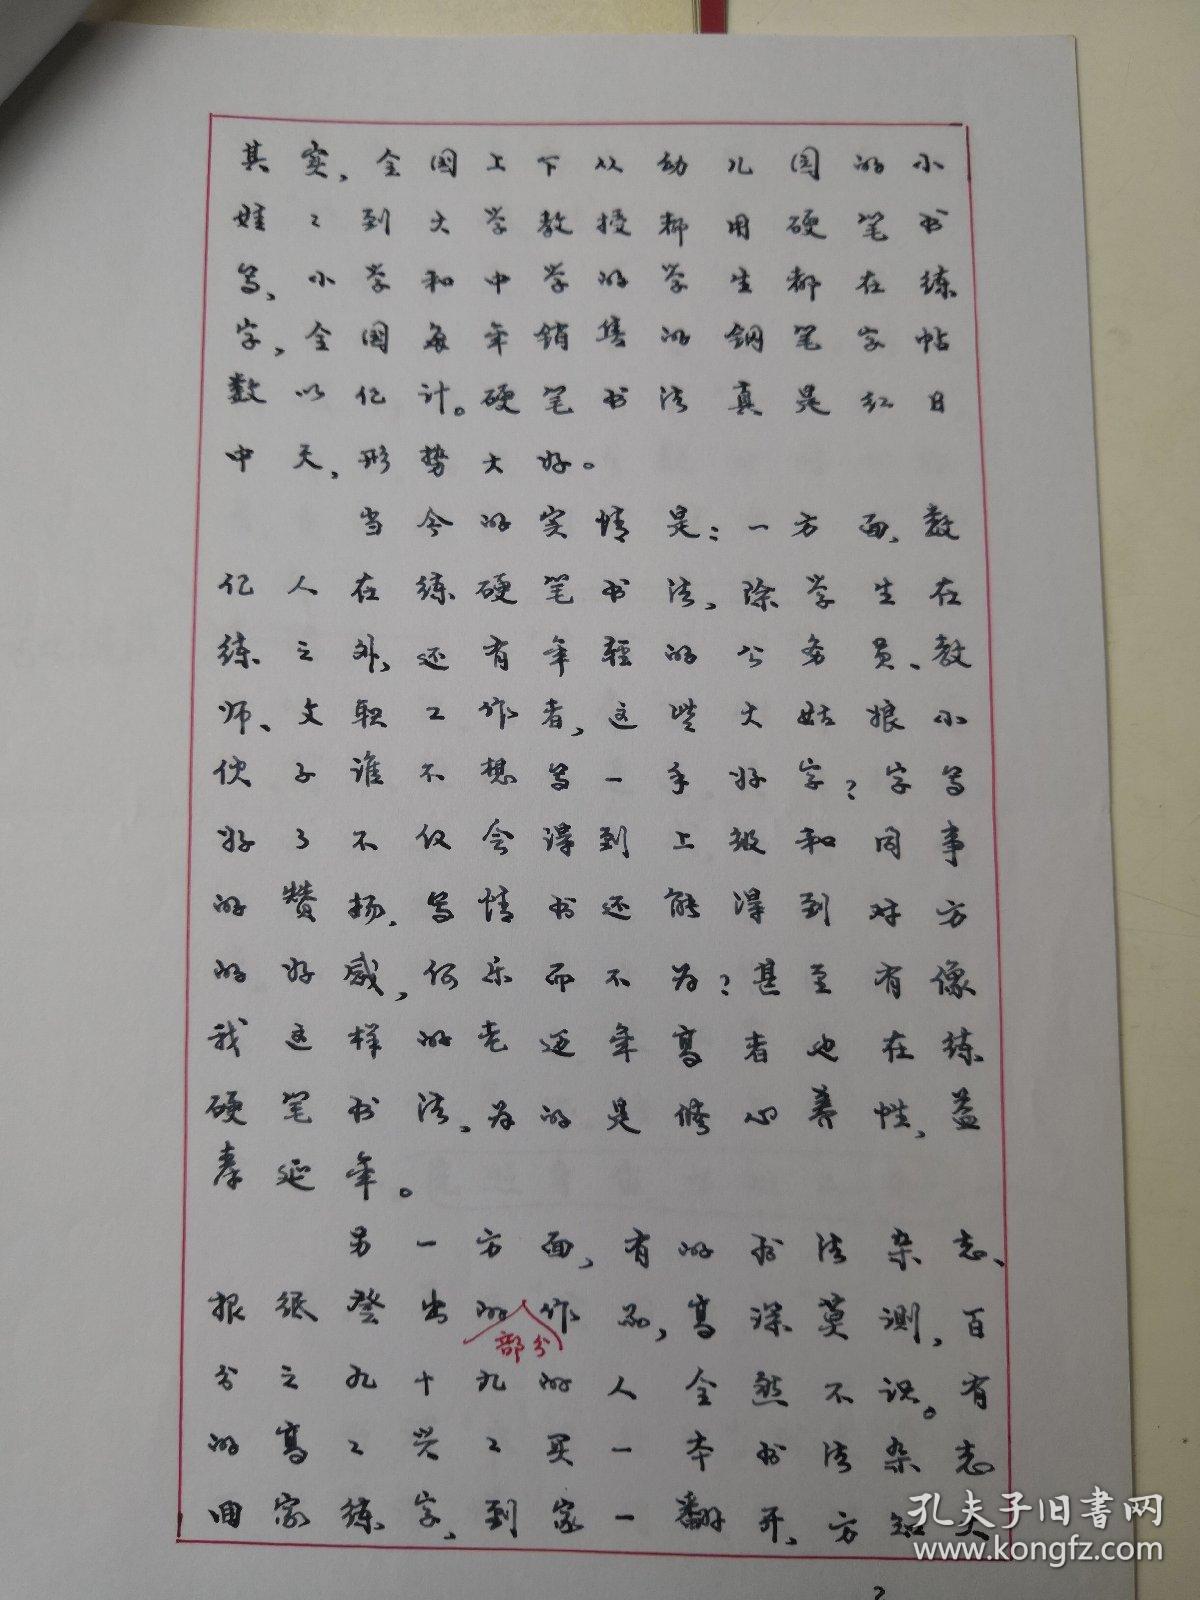 其实，全国上下从幼儿园的小
娃〻到大学教授都用硬笔书
写，小学和中学的学生都在练
字，全国每年销售的钢笔字帖
数以亿计。硬笔书法真是红日
中天，形势大好。
当今的实情是：一方面，数
亿人在练硬笔书法，除学生在
练之外，还有年轻的公务员、教
师、文职工作者，这些大姑娘小
伙子谁不想写一手好字？字写
好了不仅会得到上级和同事
的赞扬，写情书还能得到对方
的好感，何乐而不为？甚至有像
我这样的老迈年高者也在练
硬笔书法，为的是修心养性，益
寿延年。
另一方面，有的书法杂志、
报纸登出的部分作品，高深莫测，百
分之九十九的人全然不识。有
的高〻兴〻买一本书法杂志
回家练字，到家一翻开，方知大
孔夫子旧书网
www.kongfz.com
2